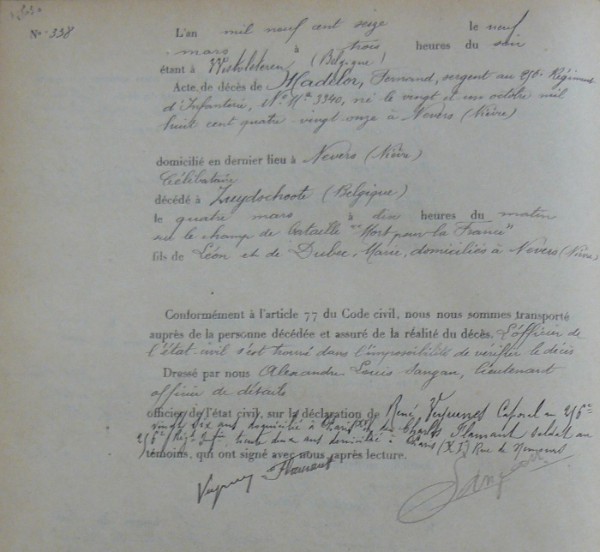 No 338
L'an mil neuf cent seize le neuf
mars à trois heures du soir
étant à (Belgique)
Acte de décès de Hadelor, Fernand, sergent au Régiment
d'Infanterie, No Mle 3340, né le vingt et un octobre mil
huit cent quatre vingt onze à Nevers (Nièvre)
domicilié en dernier lieu à Nevers (Nièvre)
Célibataire
décédé à Zuydschoote (Belgique)
le quatre mars à dix heures du matin
sur le champ de bataille "Mort pour la France"
fils de Léon et de Dubec, Marie, domiciliés à Nevers (Nièvre)
Conformément à l'article 77 du Code civil, nous nous sommes transporté
auprès de la personne décédée et assuré de la réalité du décès. L'officier de
l'état-civil s'est trouvé dans l'impossibilité de vérifier le décès
Dressé par nous Alexandre Louis Sangan, lieutenant
officier de détails
officier de l'état civil, sur la déclaration de René, Caporal au
vingt six ans, domicilié à Charles Flamant soldat au
Rég. trente deux ans domicilié à Paris (XI) Rue de Nemours
témoins, qui ont signé avec nous après lecture.
Flamant
Sangan